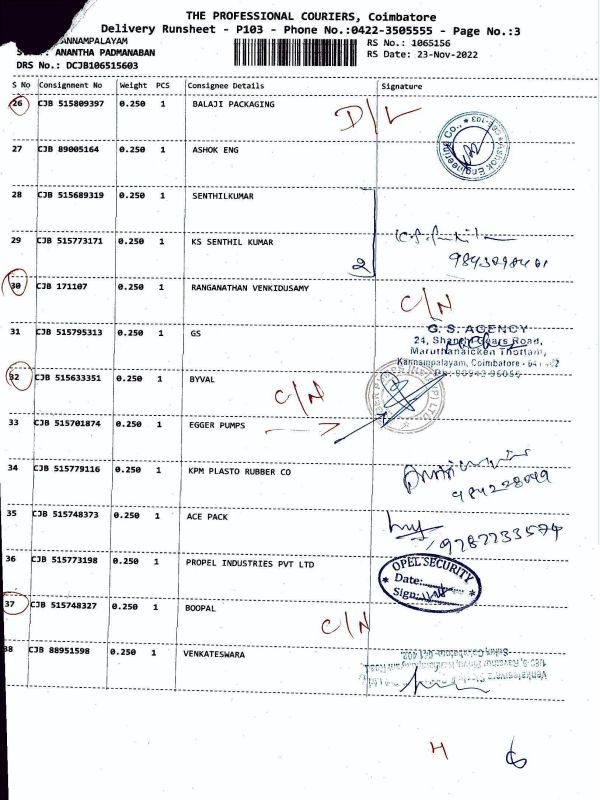 THE PROFESSIONAL COURIERS, Coimbatore
Delivery Runsheet - P103 - Phone No.:0422-3505555 - Page No.:3
ANNAMPALAYAM
RS No.: 1065156
ANANTHA PADMANABAN
RS Date: 23-Nov-2022
DRS No.: DCJB106515603
S No Consignment No Weight PCS Consignee Details Signature
26 CJB 515809397 0.250 1 BALAJI PACKAGING D/L
27 CJB 89005164 0.250 1 ASHOK ENG
28 CJB 515689319 0.250 1 SENTHILKUMAR
29 CJB 515773171 0.250 1 KS SENTHIL KUMAR
2
30 CJB 171107 0.250 1 RANGANATHAN VENKIDUSAMY C/N
31 CJB 515795313 0.250 1 GS
G. S. AGENCY
24, Shanthi Gears Road,
Maruthanaicken Thottam,
Kannampalayam, Coimbatore
32 CJB 515633351 0.250 1 BYVAL C/N
33 CJB 515701874 0.250 1 EGGER PUMPS
34 CJB 515779116 0.250 1 KPM PLASTO RUBBER CO
35 CJB 515748373 0.250 1 ACE PACK
9787733574
36 CJB 515773198 0.250 1 PROPEL INDUSTRIES PVT LTD
OPEL SECURITY
Date:
Sign:
37 CJB 515748327 0.250 1 BOOPAL C/N
38 CJB 88951598 0.250 1 VENKATESWARA